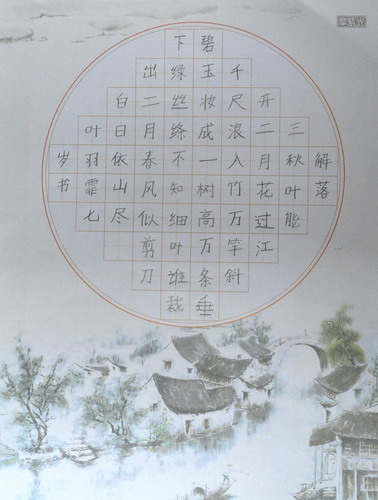 解落
三秋叶能
开二月花过江
千尺浪入竹万竿斜
碧玉妆成一树高万条垂
下绿丝绦不知细叶谁裁
出二月春风似剪刀
白日依山尽
叶羽霏七
岁书